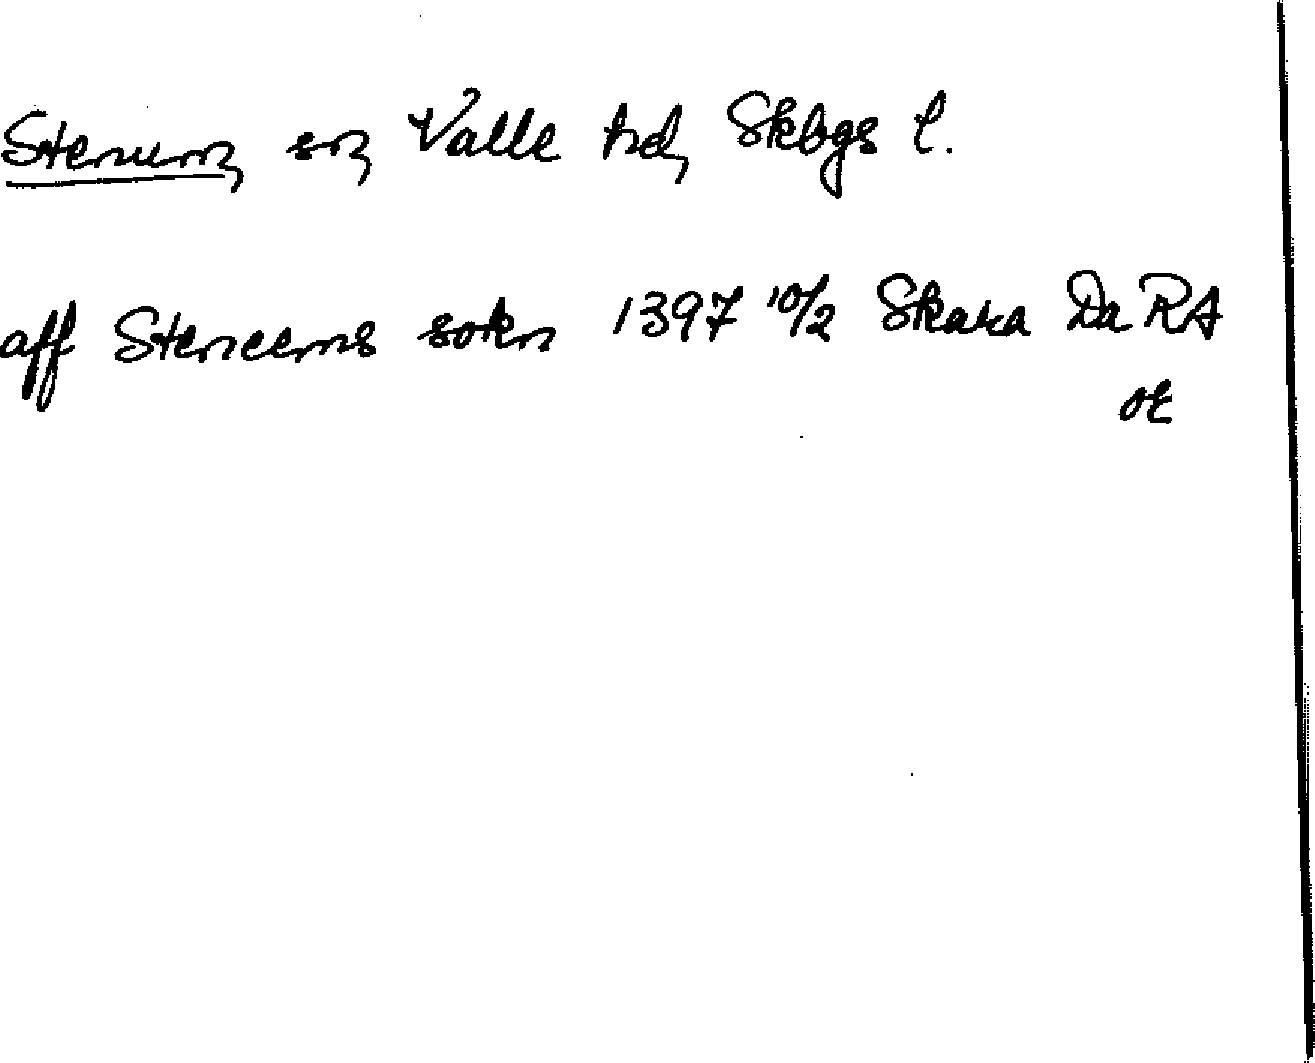 Stenum, sn, Valle hd, Skbgs l.
aff Steneems sokn 1397 10/2 Skara Da RA
or